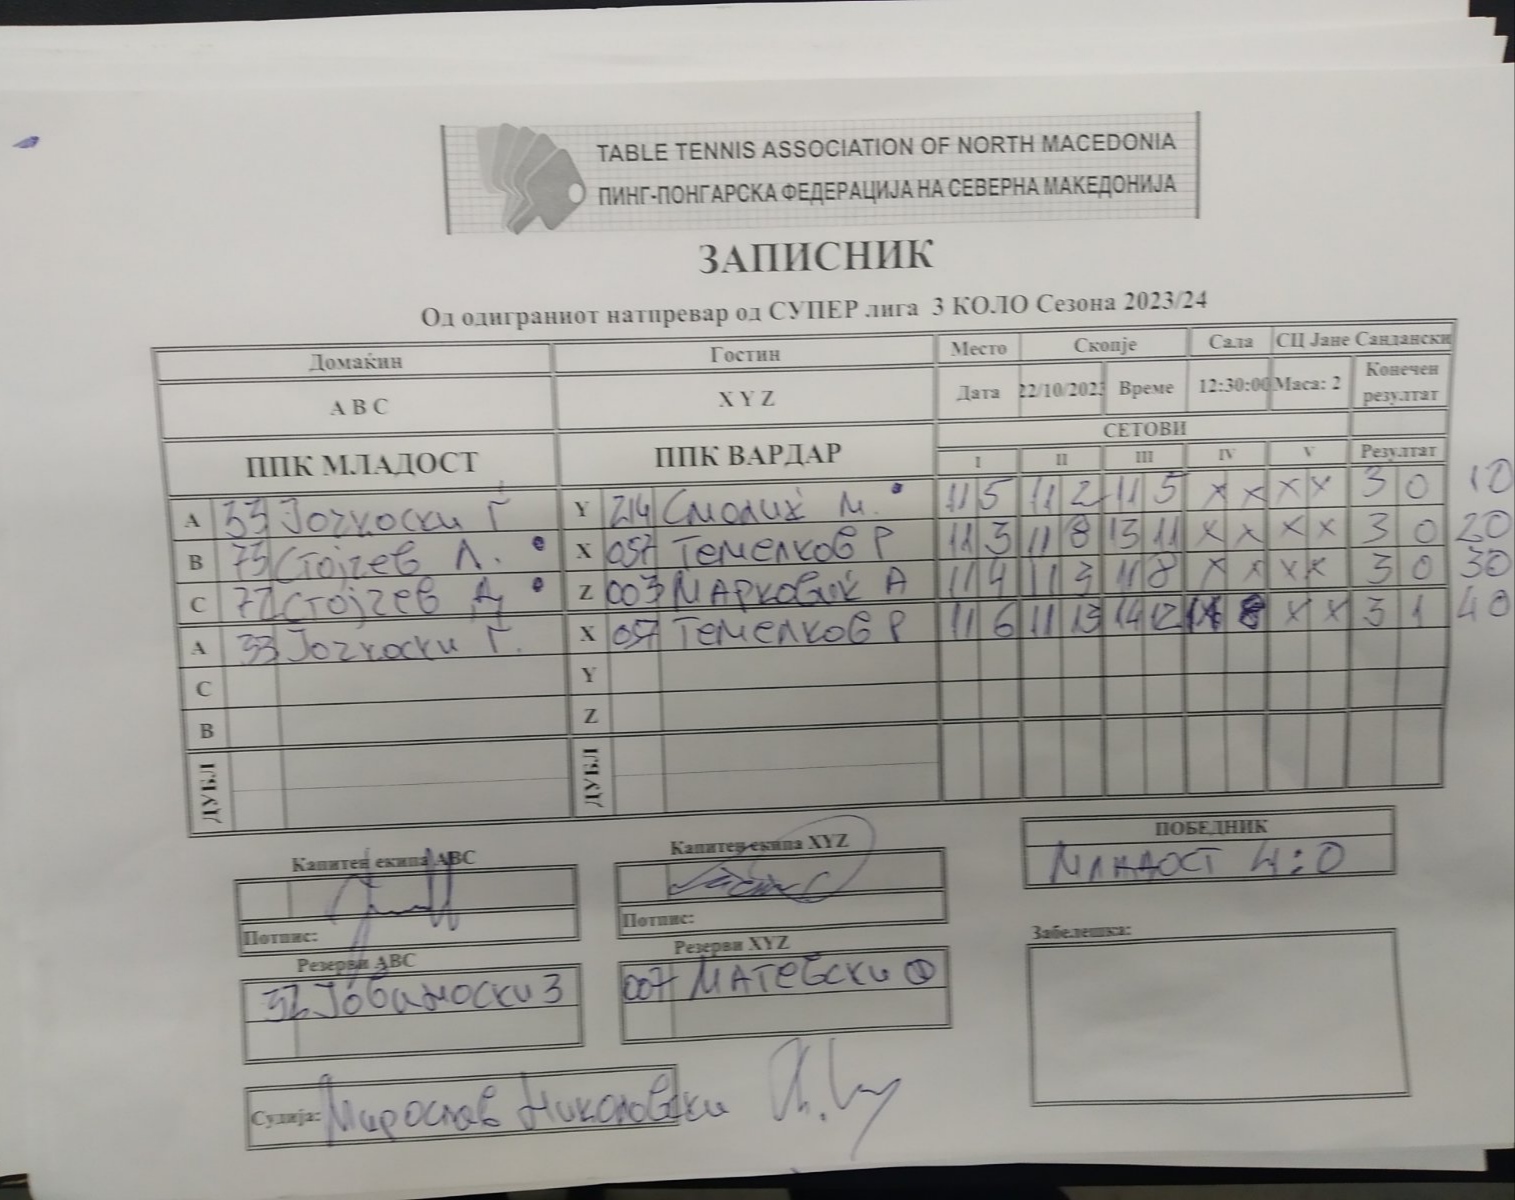 TABLE TENNIS ASSOCIATION OF NORTH MACEDONIA
ПИНГ-ПОНГАРСКА ФЕДЕРАЦИЈА НА СЕВЕРНА МАКЕДОНИЈА
ЗАПИСНИК
Од одиграниот натпревар од СУПЕР лига 3 КОЛО Сезона 2023/24
Домаќин Гостин Место Скопје Сала СЦ Јане Сандански
A B C X Y Z Дата 22/10/2023 Време 12:30:00 Маса: 2 Конечен резултат
ППК МЛАДОСТ ППК ВАРДАР СЕТОВИ
I II III IV V Резултат
A 33 Јочкоски Г Y 214 Смолиќ М. 11 5 11 2 11 5 X X X X 3 0 10
B 75 Стојчев Л. X 057 Темелков Р 11 3 11 8 13 11 X X X X 3 0 20
C 77 Стојчев Д Z 003 Марковиќ А 11 4 11 3 11 8 X X X X 3 0 30
A 33 Јочкоски Г. X 057 Темелков Р 11 6 11 13 14 12 X X 3 1 40
C Y
B Z
ДУБЛ ДУБЛ
Капитен екипа ABC Капитен екипа XYZ ПОБЕДНИК
Младост 4:0
Потпис: Потпис:
Резерви ABC Резерви XYZ Забелешка:
32 Јовановски З 007 Матевски Ф
Судија: Мирослав Николовски